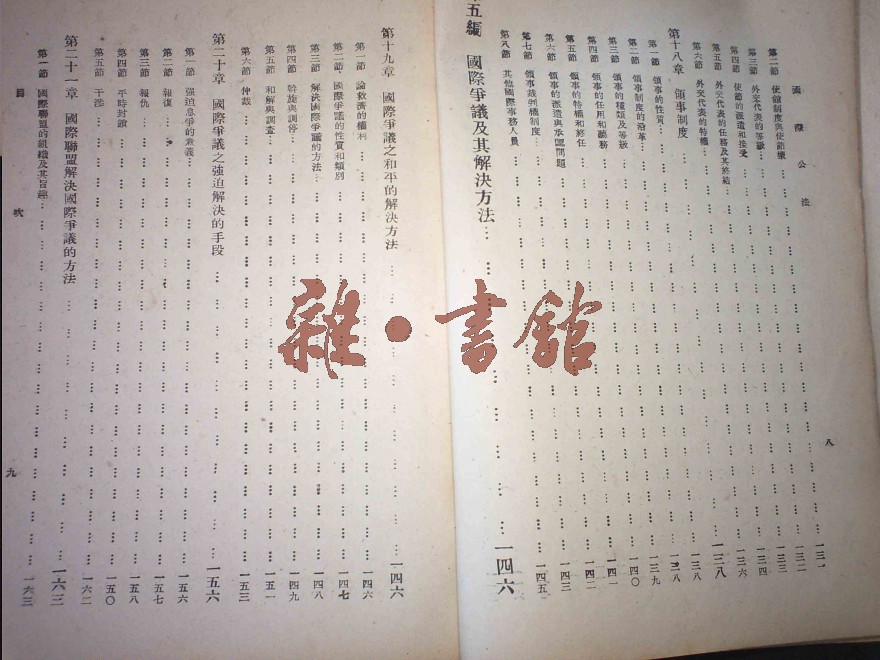 國際公法
八
第二節 使館制度與使節權 一三一
第三節 外交代表的等級 一三二
第四節 使節的派遣和接受 一三四
第五節 外交代表的任務及其終結 一三六
第六節 外交代表的特權 一二八
第十八章 領事制度 一三八
第一節 領事的性質 一三八
第二節 領事制度的沿革 一三九
第三節 領事的種類及等級 一四〇
第四節 領事的任用和職務 一四一
第五節 領事的特權和終任 一四二
第六節 領事的派遣與承認問題 一四三
第七節 領事裁判權制度 一四五
第八節 其他國際事務人員
五編 國際爭議及其解決方法 一四六
第十九章 國際爭議之和平的解決方法 一四六
第一節 論救濟的權利 一四六
第二節 國際爭議的性質和類別 一四七
第三節 解決國際爭議的方法 一四八
第四節 斡旋與調停 一四九
第五節 和解與調查 一五一
第六節 仲裁 一五三
第二十章 國際爭議之強迫解決的手段 一五六
第一節 強迫息爭的意義 一五六
第二節 報復 一五七
第三節 報仇 一五八
第四節 平時封鎖 一五〇
第五節 干涉 一六二
第二十一章 國際聯盟解決國際爭議的方法 一六三
第一節 國際聯盟的組織及其旨趣 一六三
目次
九
雜·書館